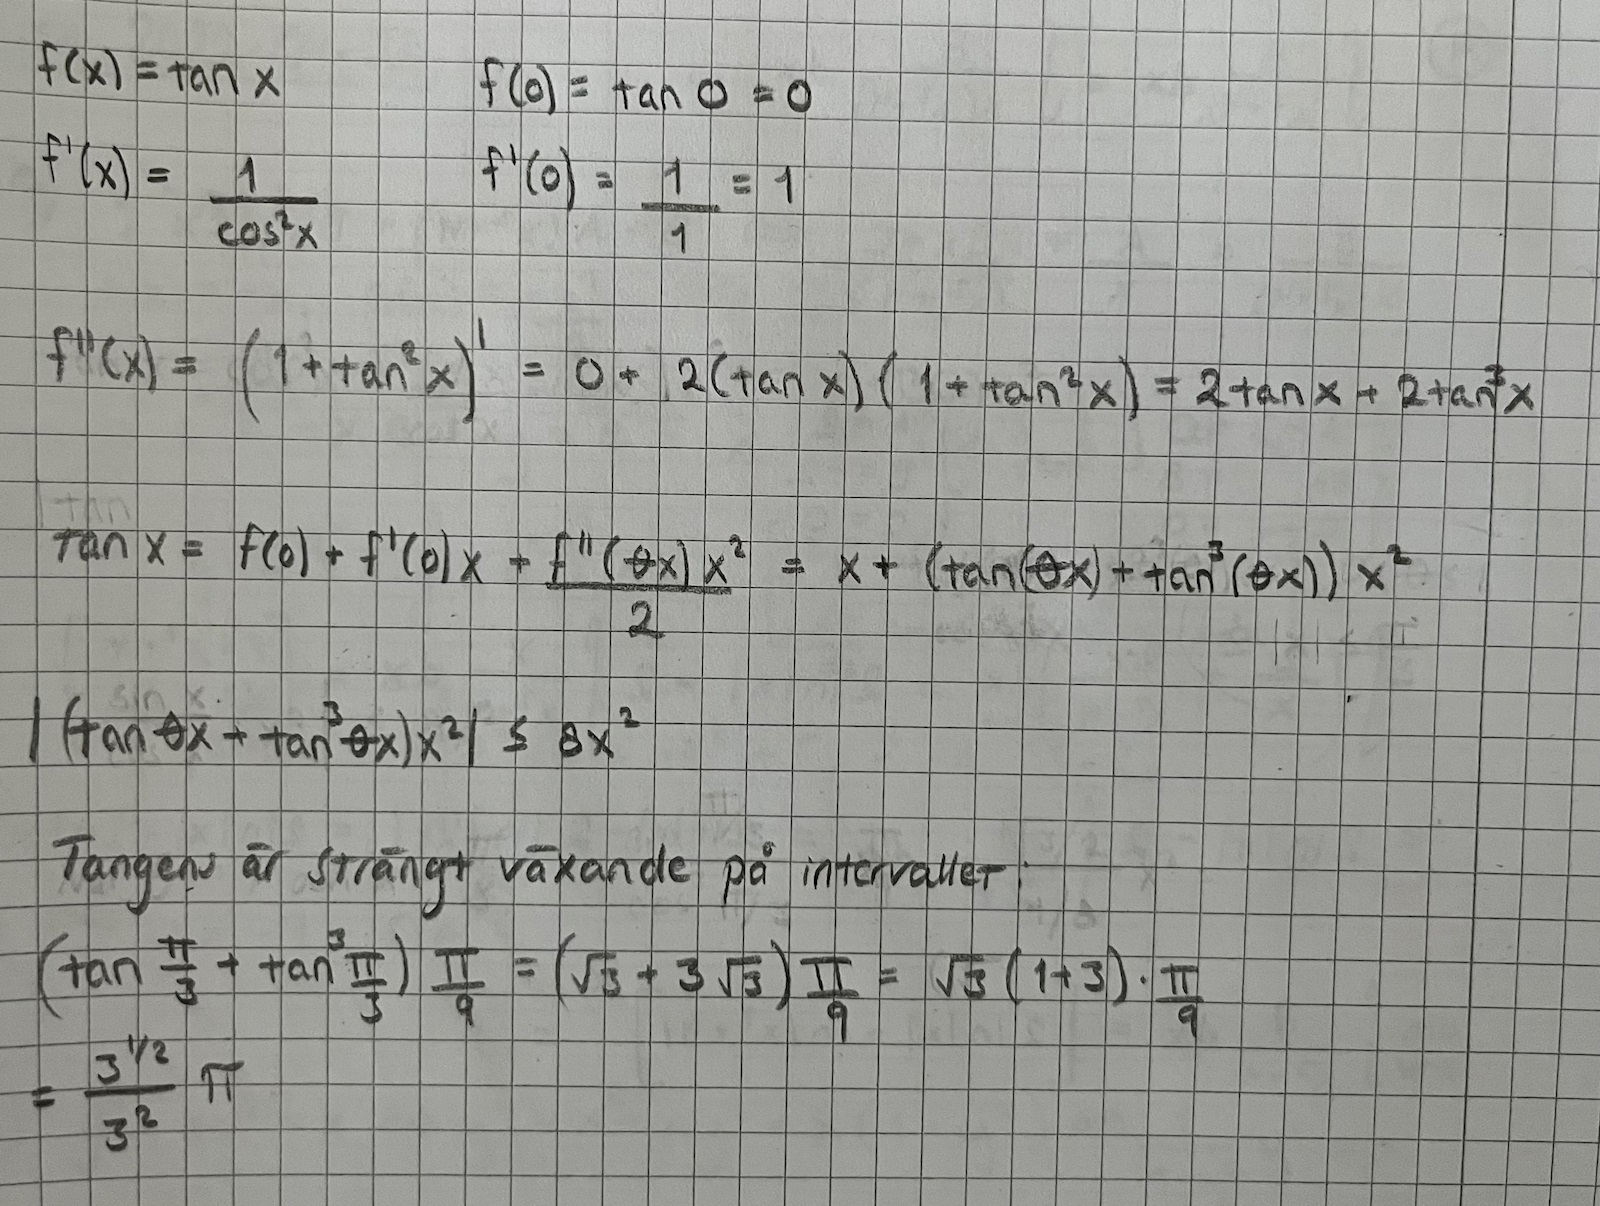 f(x) = tan x f(0) = tan 0 = 0
f'(x) = 1/cos²x f'(0) = 1/1 = 1
f''(x) = (1 + tan²x)' = 0 + 2(tan x)(1 + tan²x) = 2tan x + 2tan³x
tan x = f(0) + f'(0)x + f''(θx)x²/2 = x + (tan(θx) + tan³(θx)) x²
|(tan θx + tan³θx)x²| ≤ 8x²
Tangens är strängt växande på intervallet:
(tan π/3 + tan³ π/3) π/9 = (√3 + 3√3) π/9 = √3(1+3) · π/9
= 3^(1/2)/3² π